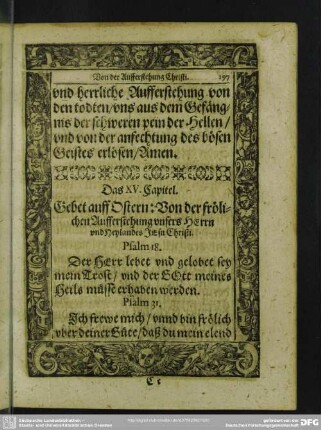 Von der Aufferstehung Christi. 197
vnd herrliche Aufferstehung von
den todten/ vns aus dem Gefäng,
nis der schweren pein der Hellen/
vnd von der anfechtung des bösen
Geistes erlösen/ Amen.
Das XV. Capitel.
Gebet auff Ostern: Von der fröli-
chen Aufferstehung vnsers HErrn
vnd Heylandes JEsu Christi.
Psalm 18.
Der HErr lebet vnd gelobet sey
mein Trost/ vnd der GOtt meines
Heils müsse erhaben werden.
Psalm 31.
Ich frewe mich/ vnnd bin frölich
vber deiner Güte/ daß du mein elend